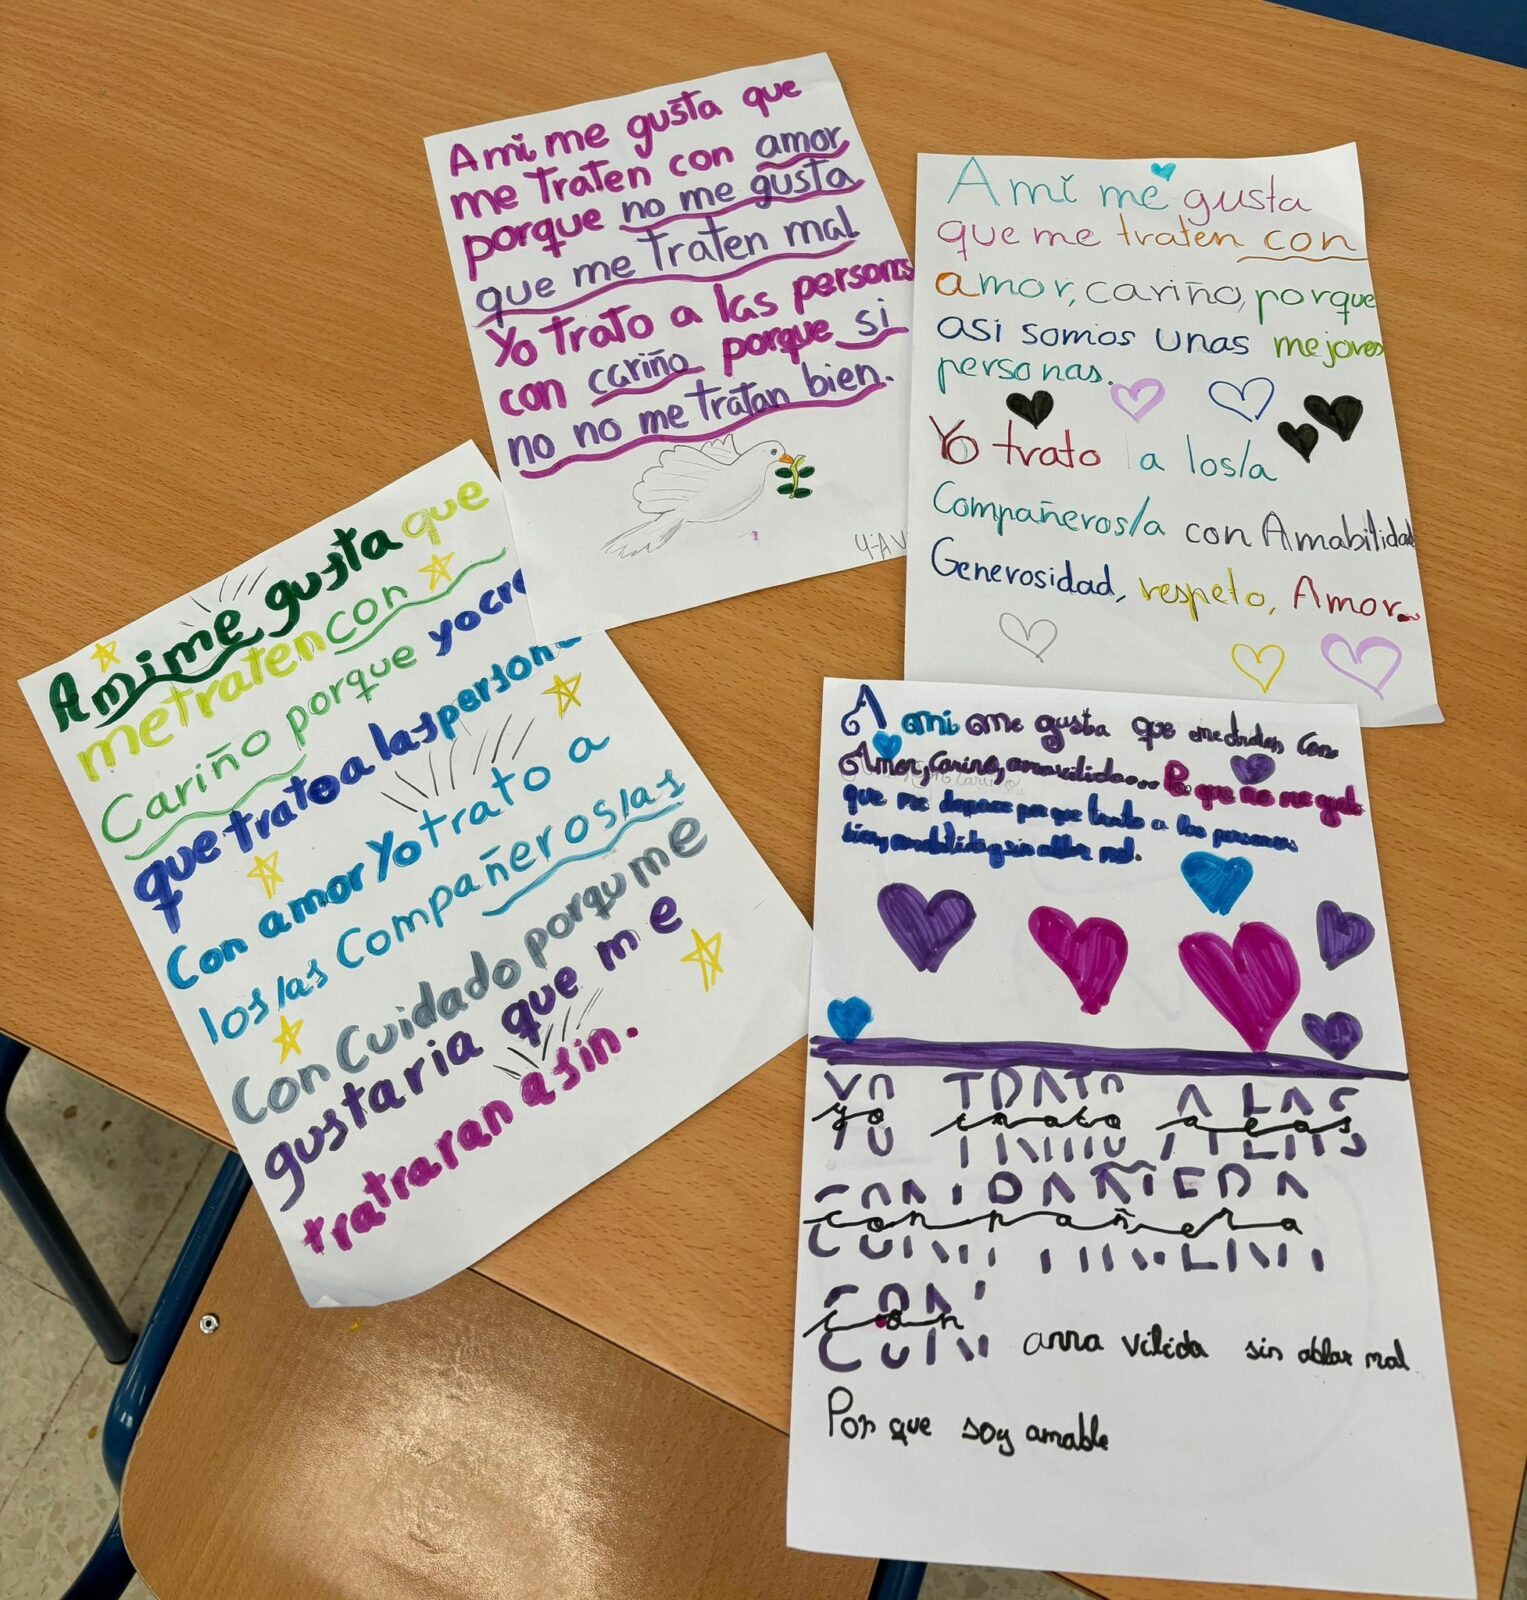 A mi me gusta que
me traten con amor
porque no me gusta
que me traten mal
Yo trato a las personas
con cariño porque si
no no me tratan bien.
A mi me gusta
que me traten con
amor, cariño, porque
asi somos unas mejores
personas.
Yo trato a los/a
Compañeros/a con Amabilidad
Generosidad, respeto, Amor.
A mi me gusta que
me traten con
Cariño porque yo cre
que trato a las person
Con amor Yo trato a
los/as Compañeros/as
Con Cuidado porqu me
gustaria que me
trataran asin.
A mi me gusta que me traten con
Amor, Carino,
Por que no me gusta
que me porque trato a las personas
bien, y sin ablar mal.
YO TRATO A LAS
yo trato a las
COMPAÑERA
compañera
CON
con anna vilida sin ablar mal
Por que soy amable